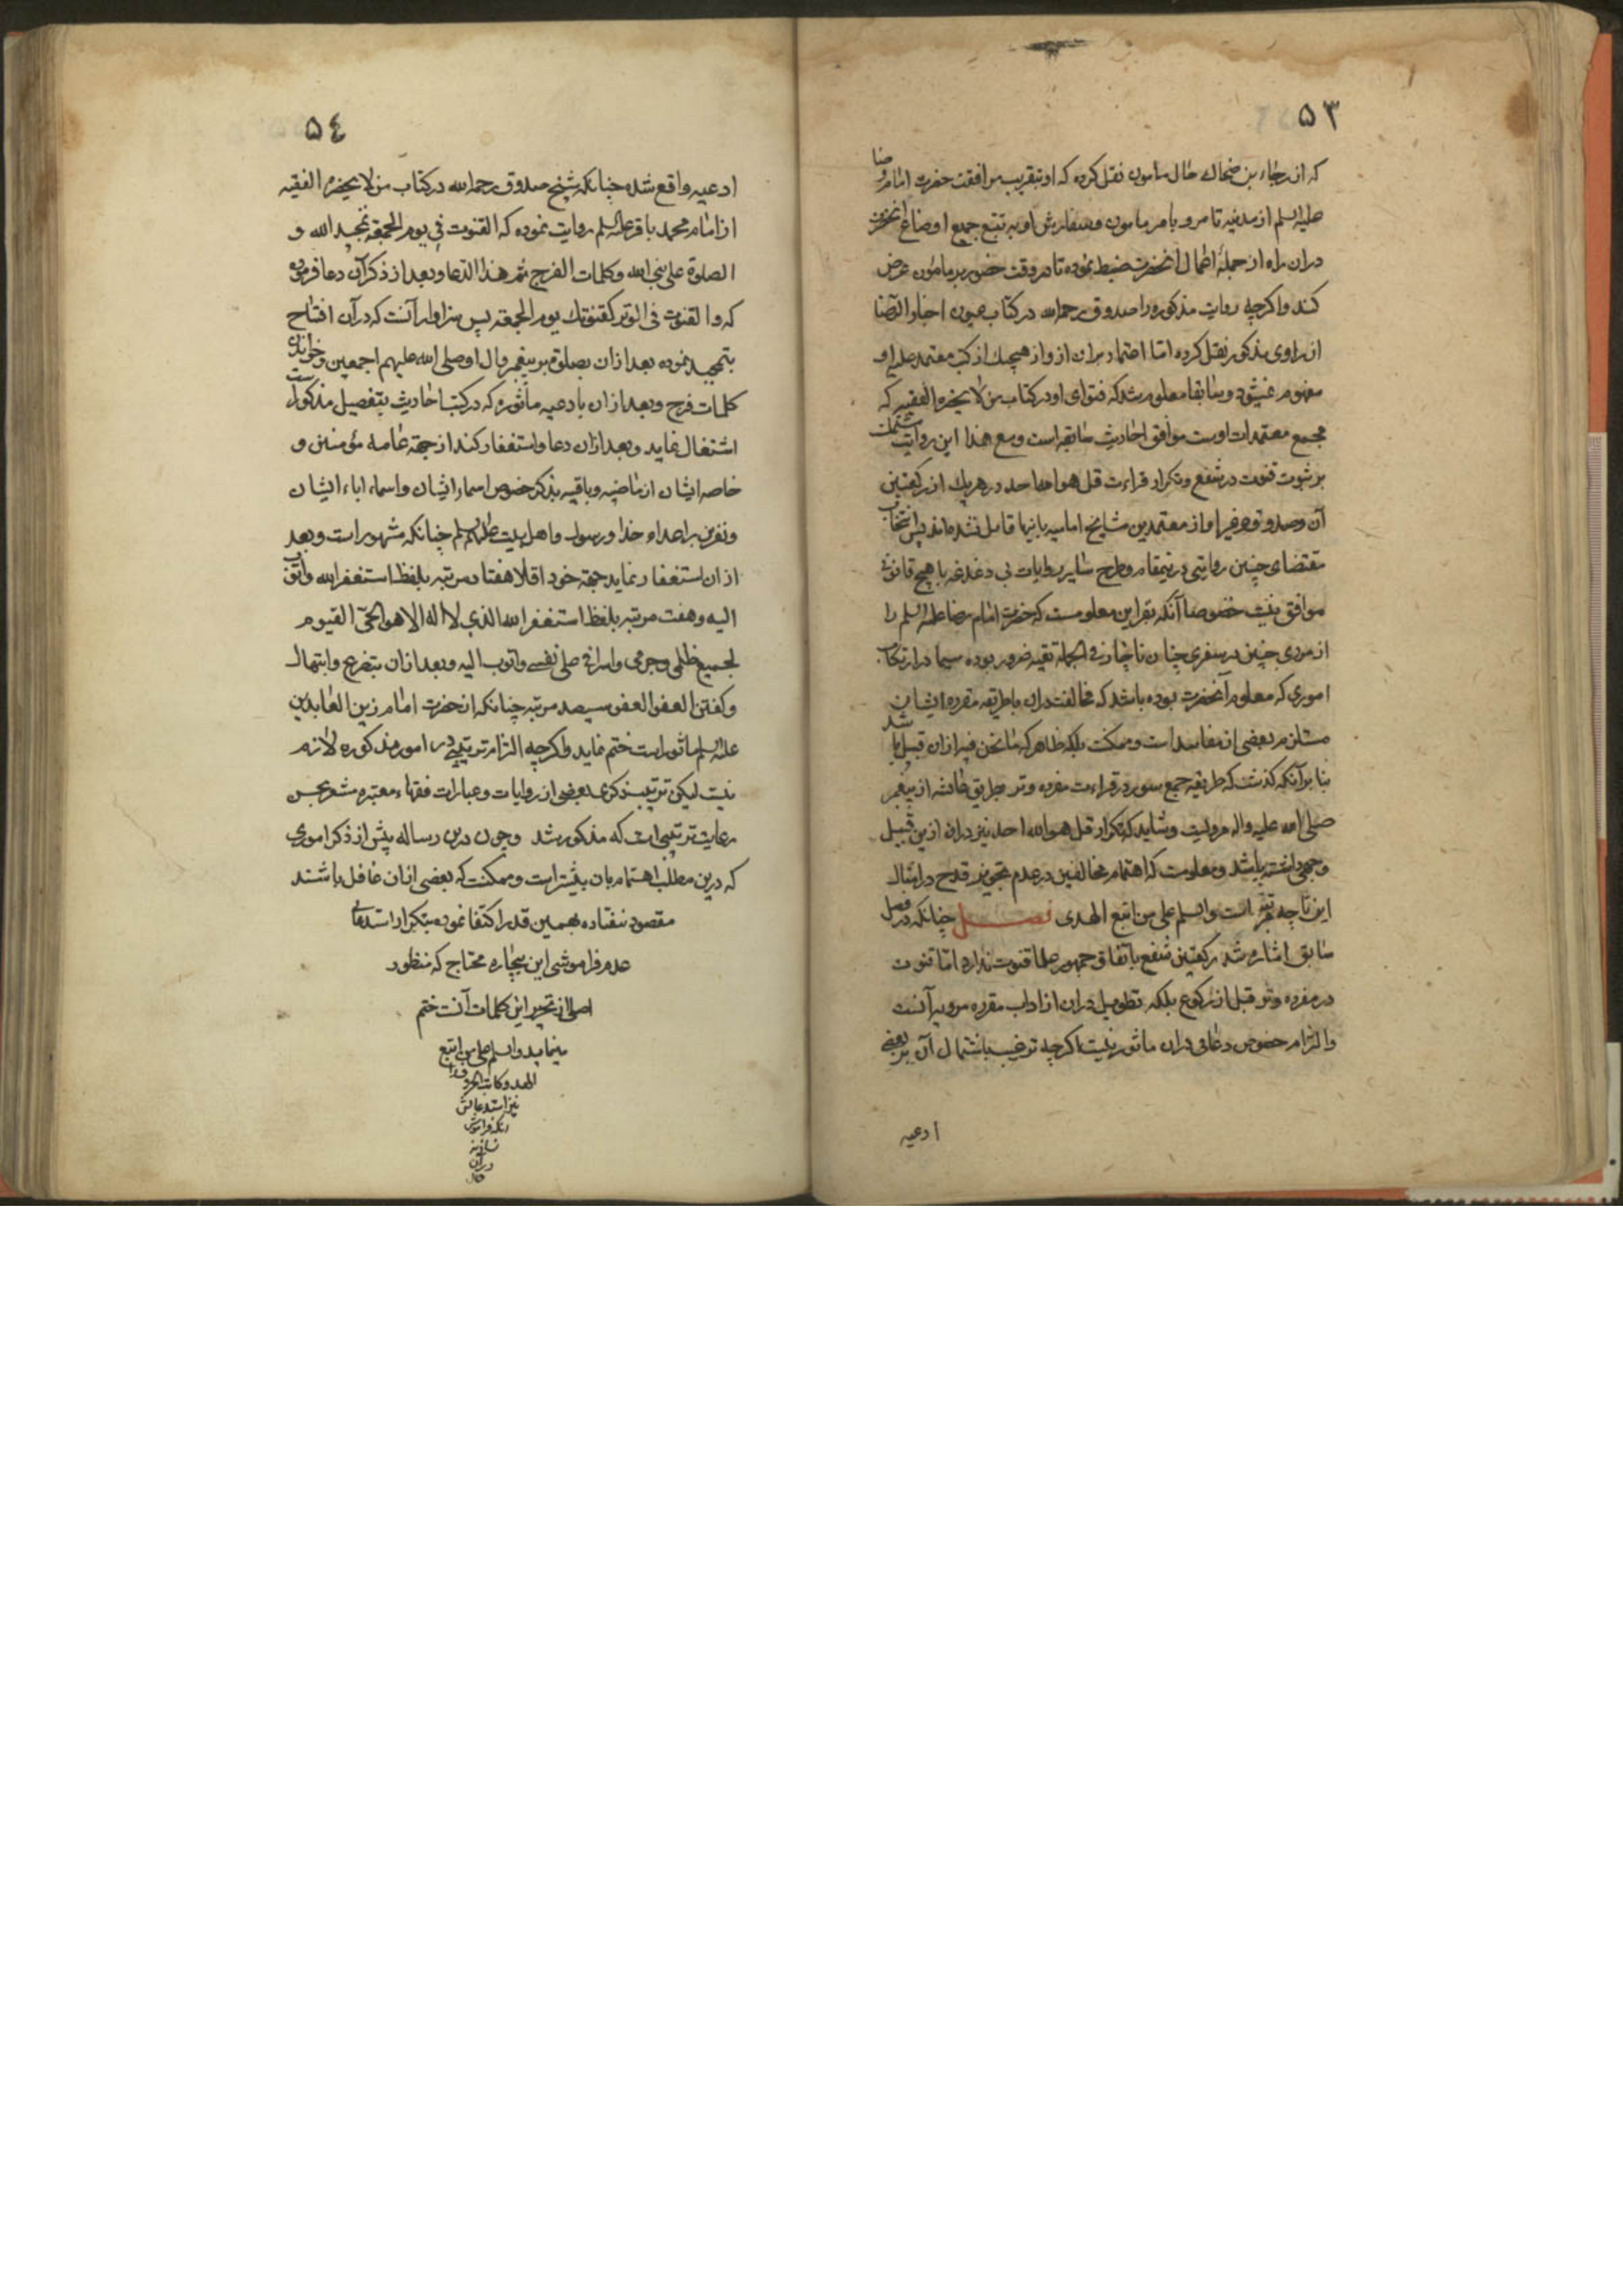 ۵۳
که از رجاء بن ضحاک خال مأمون نقل کرده که او بتقریب مرافقت حضرت امام رضا
علیه السلم از مدینه تا مرو بامر مامون و سفارش او به تتبع جمیع اوضاع آنحضرت
در ان راه از جمله اعمال آنحضرت ضبط نموده تا در وقت حضور بر مامون عرض
کند و اکرچه روایت مذکوره را صدوق رحمه الله در کتاب عیون اخبار الرضا
از راوی مذکور نقل کرده اما اعتماد بر ان از و از هیچیك از کتب معتمد علیه او
مفهوم نمیشود و سابقا معلوم شد که فتوای او در کتاب من لا یحضره الفقیه که
مجمع معتمدات اوست موافق احادیث سابقه است و مع هذا این روایت مشتملست
بر ثبوت قنوت در شفع و تکرار قراءت قل هو الله احد در هر یك از رکعتین
آن و صدوق و غیر او از معتمدین مشایخ امامیه بانها قایل نشده اند پس انتخاب
مقتضای چنین روایتی درینمقام و طرح سایر روایات بی دغدغه با هیچ قانونی
موافق نیست خصوصا آنکه بقراین معلومست که حضرت امام رضا علیه السلم را
از مردی چنین در سفری چنان ناچار فی الجمله تقیه ضرور بوده سیما در ارتکاب
اموری که معلوم آنحضرت بوده باشد که مخالفت در ان با طریقه مقرره ایشان
مستلزم بعضی از مفاسد است و ممکنست بلکه ظاهر که ما نحن فیه از ان قبیل باشد
بنا بر آنکه کذشت که طریقه جمع سور در قراءت مفرده وتر بطریق عائشه از پیغمبر
صلی الله علیه و اله مرویست و شاید که تکرار قل هو الله احد نیز در ان ازین قبیل
وجهی داشته باشد و معلومست که اهتمام مخالفین در عدم تجویز قدح در امثال
این تا چه مرتبه است و السلم علی من اتبع الهدی فصــل چنانکه در فصل
سابق اشاره شد رکعتین شفع باتفاق جمهور علما قنوت ندارد اما قنوت
در مفرده وتر قبل از رکوع بلکه تطویل در ان از اداب مقرره مرویه آنست
و التزام خصوص دعائی در ان ماثور نیست اکرچه ترغیب باشتمال آن بر بعضی
ادعیه
۵٤
ادعیه واقع شده چنانکه شیخ صدوق رحمه الله در کتاب من لا یحضره الفقیه
از امام محمد باقر علیه السلم روایت نموده که القنوت فی یوم الجمعة تمجید الله و
الصلوة علی نبی الله و کلمات الفرج ثم هذا الدعا و بعد از ذکر آن دعا فرموده
که و القنوت فی الوتر کقنوتك یوم الجمعه پس سزاوار آنست که در آن افتتاح
بتمجید نموده بعد از ان بصلوة بر پیغمبر و ال او صلی الله علیهم اجمعین و خواندن
کلمات فرج و بعد از ان بادعیه مأثوره که در کتب احادیث بتفصیل مذکور است
اشتغال نماید و بعد ازان دعا و استغفار کند از جهة عامه مؤمنین و
خاصه ایشان از ماضیه و باقیه بذکر خصوص اسماء ایشان و اسماء اباء ایشان
و نفرین بر اعداء خدا و رسول و اهل بیت علیهم السلم چنانکه مشهور است و بعد
از ان استغفار نماید جهة خود اقلا هفتاد مرتبه بلفظ استغفر الله و اتوب
الیه و هفت مرتبه بلفظ استغفر الله الذی لا اله الا هو الحیّ القیوم
لجمیع ظلمی و جرمی و اسرافی علی نفسی و اتوب الیه و بعد از ان بتضرع و ابتهال
و کفتن العفو العفو سیصد مرتبه چنانکه از حضرت امام زین العابدین
علیه السلم ماثور است ختم نماید و اکرچه التزام ترتیبی در امور مذکوره لازم
نیست لیکن ترتیب ذکری بعضی از روایات و عبارات فقهاء معتبره مشعر بحسن
رعایت ترتیبی است که مذکور شد و چون درین رساله پیش از ذکر اموری
که درین مطلب اهتمام بان بیشتر است و ممکنست که بعضی از ان غافل باشند
مقصود نیفتاده بهمین قدر اکتفا نموده بتکرار استدعای
عدم فراموشی این بیچاره محتاج که منظور
اصلی از تحریر این کلمات آنست ختم
مینماید و السلم علی من اتبع
الهدی و کاتب الحروف را
نیز استدعا انکه
فراموش
نسازند
در آن
حال